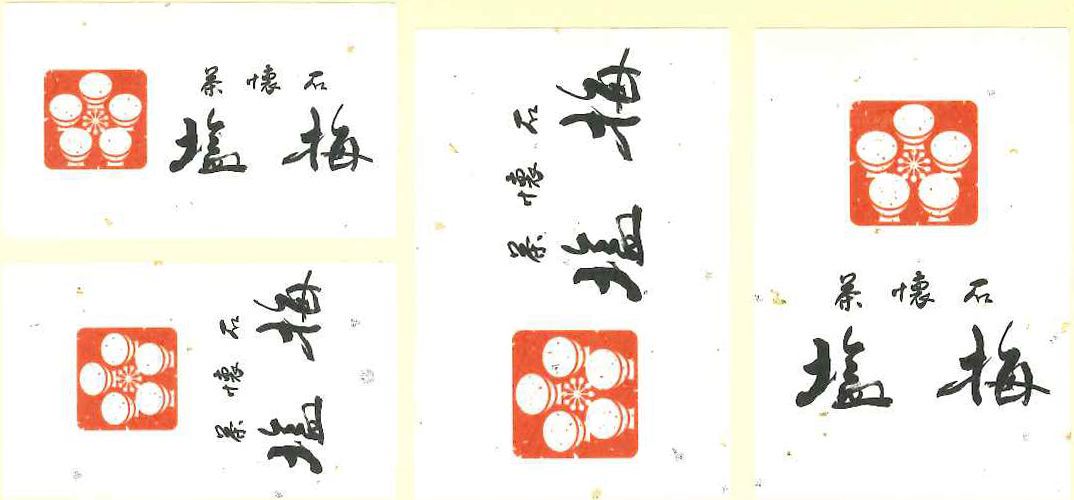 茶懐石
塩梅
茶懐石
塩梅
茶懐石
塩梅
茶懐石
塩梅